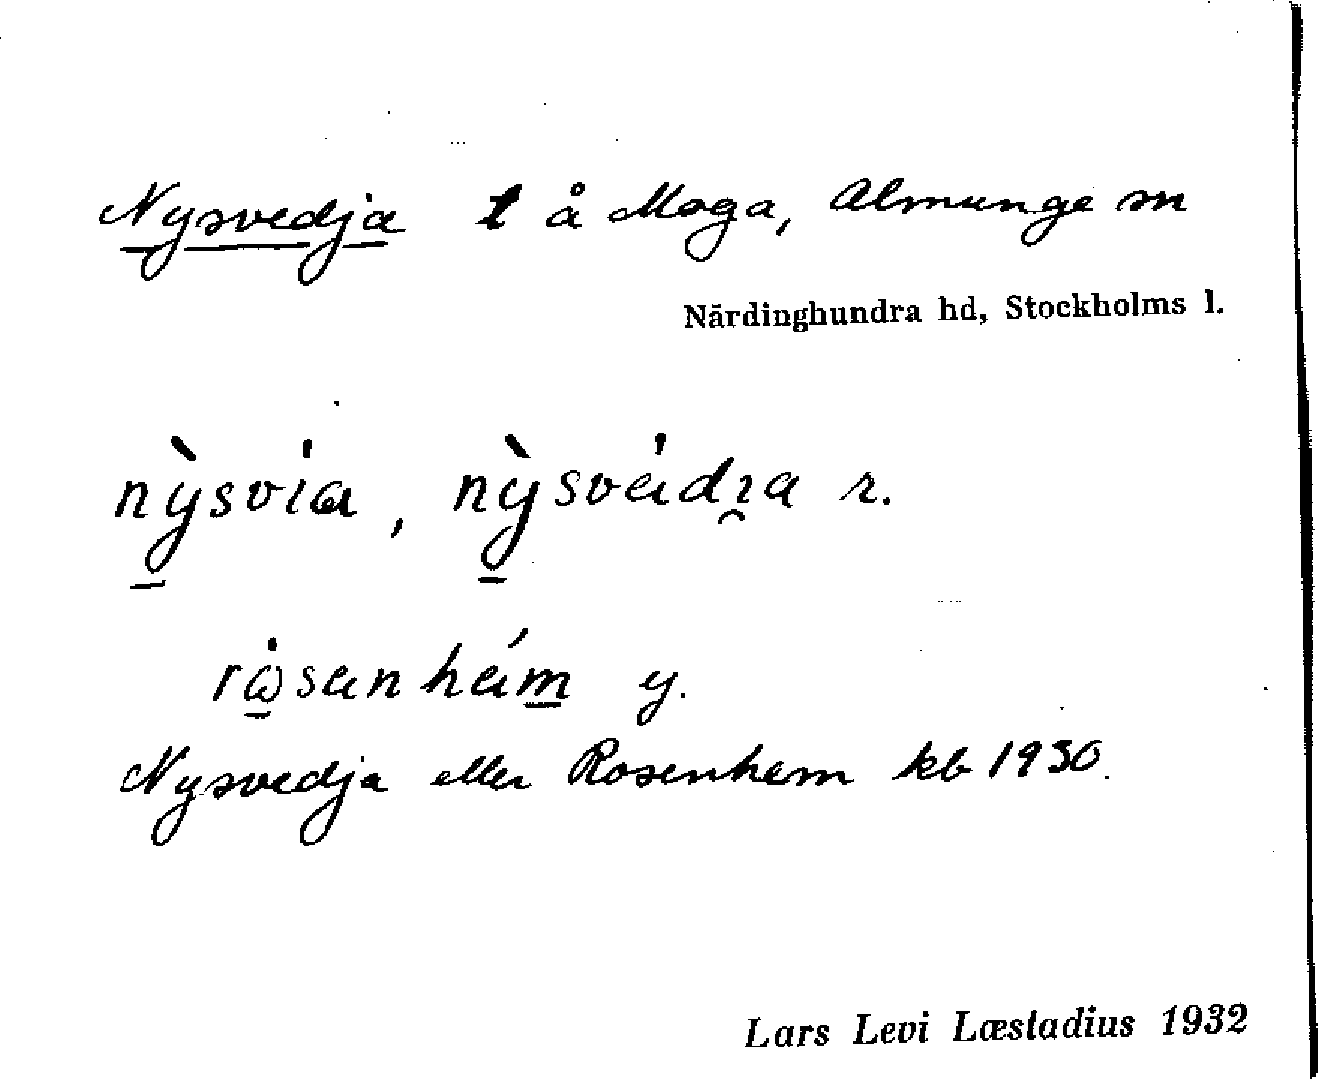 Nysvedja t å Moga, Almunge sn
Närdinghundra hd, Stockholms l.
nỳsvia, nỳsvedɿa r.
rosenhem y.
Nysvedja eller Rosenhem kb 1930.
Lars Levi Læstadius 1932